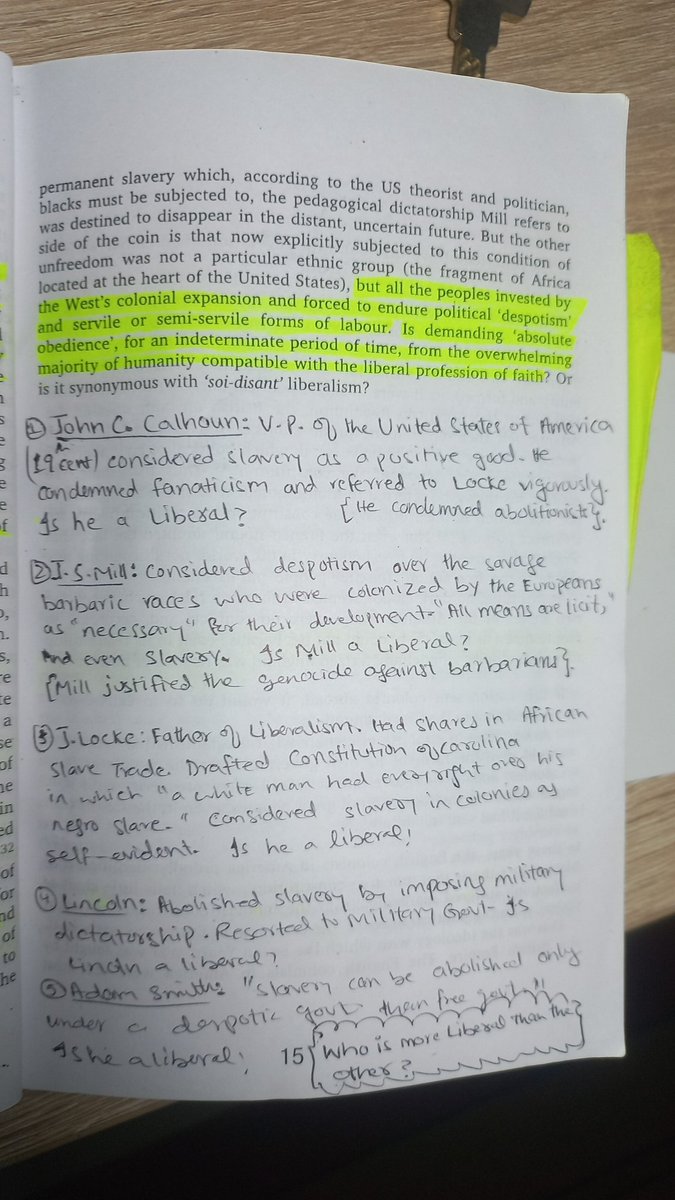 permanent slavery which, according to the US theorist and politician,
blacks must be subjected to, the pedagogical dictatorship Mill refers to
was destined to disappear in the distant, uncertain future. But the other
side of the coin is that now explicitly subjected to this condition of
unfreedom was not a particular ethnic group (the fragment of Africa
located at the heart of the United States), but all the peoples invested by
the West's colonial expansion and forced to endure political 'despotism'
and servile or semi-servile forms of labour. Is demanding 'absolute
obedience', for an indeterminate period of time, from the overwhelming
majority of humanity compatible with the liberal profession of faith? Or
is it synonymous with 'soi-disant' liberalism?
① John C. Calhoun: V.P. of the United States of America
(19 cent) considered slavery as a positive good. He
condemned fanaticism and referred to Locke vigorously.
Is he a Liberal? [He condemned abolitionists}.
② J.S. Mill: Considered despotism over the savage
barbaric races who were colonized by the Europeans
as "necessary" for their development - "All means are licit,"
And even slavery. Is Mill a Liberal?
[Mill justified the genocide against barbarians}.
③ J. Locke: Father of Liberalism. Had shares in African
Slave Trade. Drafted Constitution of Carolina
in which "a white man had every right over his
negro slave." Considered slavery in colonies as
self-evident. Is he a liberal!
④ Lincoln: Abolished slavery by imposing military
dictatorship. Resorted to Military Govt- Is
Lincln a liberal?
⑤ Adam Smith: "Slavery can be abolished only
under a despotic govt than free govt"
Is he a liberal!
15
Who is more Liberal than the
other?